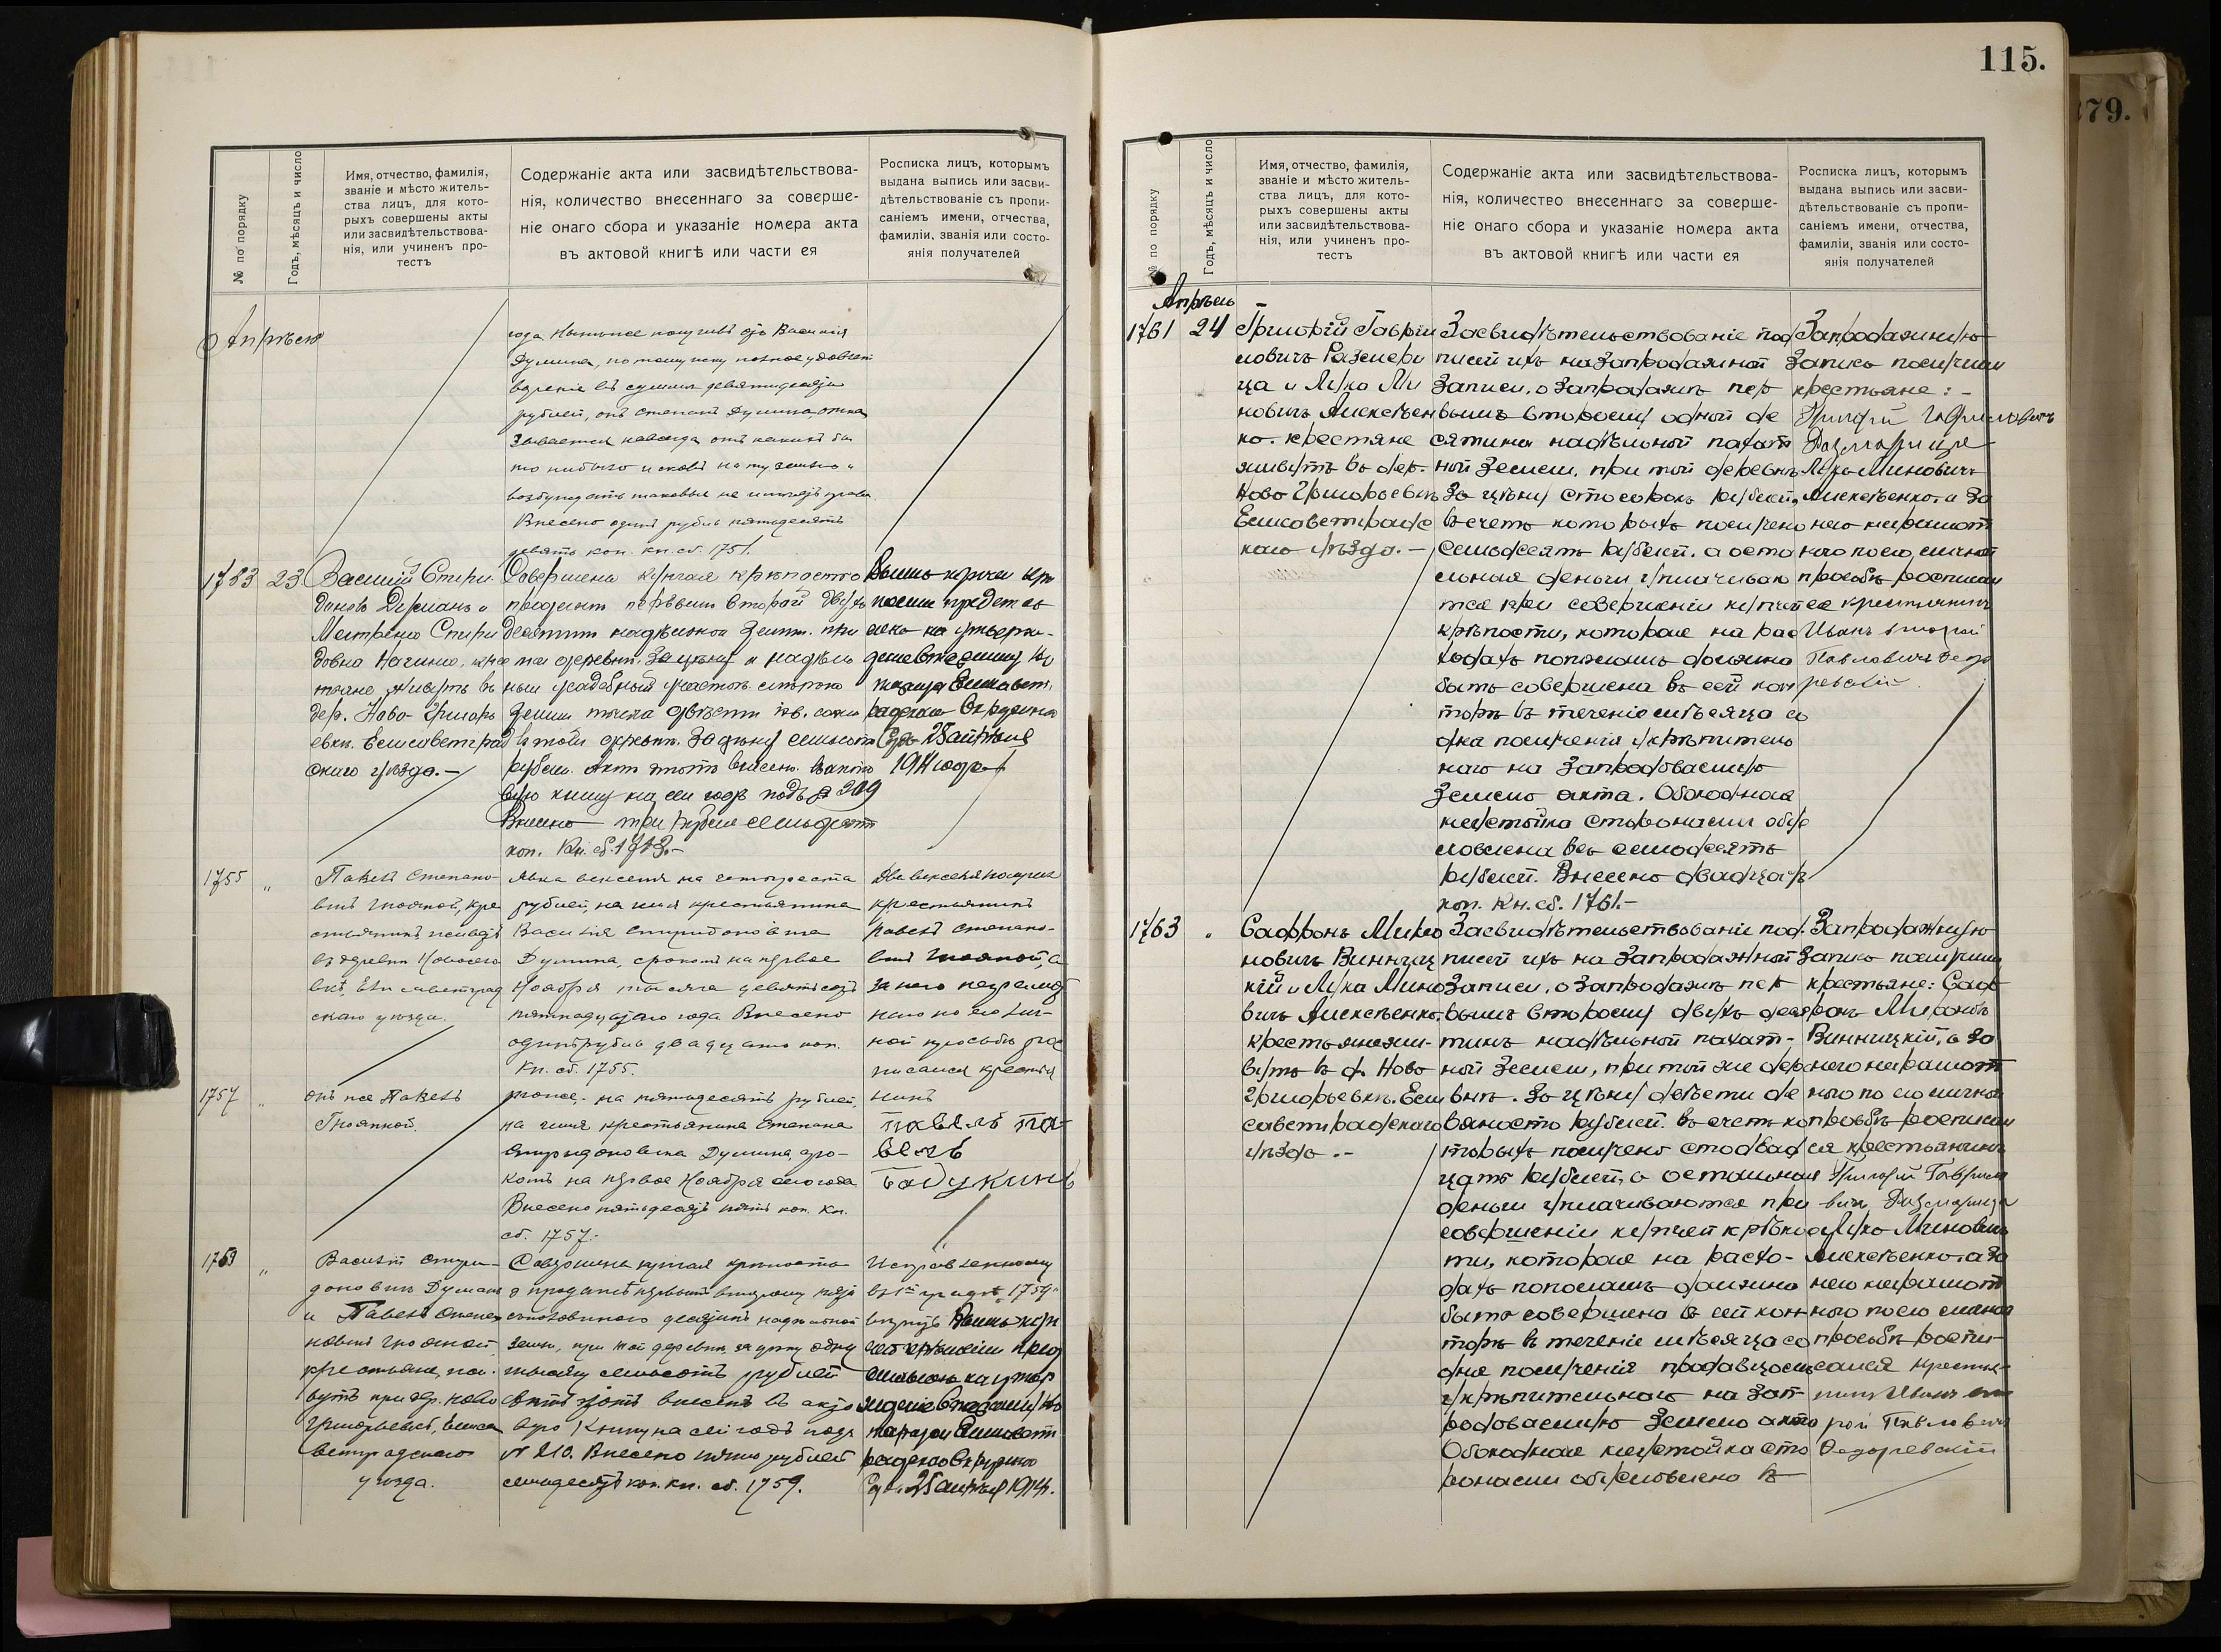 115.
179.
№ по порядку
Годъ, мѣсяцъ и число
Имя, отчество, фамилія,
званіе и мѣсто житель-
ства лицъ, для кото-
рыхъ совершены акты
или засвидѣтельствова-
нія, или учиненъ про-
тестъ
Содержаніе акта или засвидѣтельствова-
нія, количество внесеннаго за соверше-
ніе онаго сбора и указаніе номера акта
въ актовой книгѣ или части ея
Росписка лицъ, которымъ
выдана выпись или засви-
дѣтельствованіе съ пропи-
саніемъ имени, отчества,
фамиліи, званія или состо-
янія получателей
Апрѣль
года Нынѣ получивъ отъ Василія
Думина, по тому иску полное удовлет
вореніе въ суммѣ девяти
рублей, онъ Степанъ Думина отка
зывается навсегда отъ какихъ бы
то нибыло исковъ на ту землю и
возбуждать таковые не имѣетъ права
Внесено одинъ рубль пятьдесятъ
девять коп. кн. сб. 1751.
1753 23 Василій Спири
доновъ и
Матрена Спири
довна
живутъ въ
дер. Ново-Григорь
евкѣ Елисаветград
скаго уѣзда.-
Совершена купчая крѣпость о
продажѣ первымъ второй двухъ
десятинъ надѣльной земли при
той деревнѣ
усадебный участокъ мѣрою
двѣсти кв. саж.
въ той деревнѣ. За цѣну семьсотъ
рублей. Актъ этотъ внесенъ въ акто
вую книгу на сей годъ подъ № 209
Внесено три рубля семьдесятъ
коп. Кн. сб. 1753.-
Выпись крѣ
пости представ
лена на утверж-
деніе Старшему Но
таріусу Елисавет
градскаго Окружнаго
Суда 25 апрѣля
1914 года
1755 „ Павелъ Степано-
вичъ Гноянкой, кре
стьянинъ живетъ
въ деревнѣ Новогри
Елисаветград
скаго уѣзда.
Явка векселя на четыреста
рублей, на имя крестьянина
Василія Спиридоновича
Думина, срокомъ на первое
Ноября тысяча девятьсотъ
пятнадцатаго года Внесено
одинъ рубль двадцать коп.
Кн. сб. 1755.
Два векселя получилъ
крестьянинъ
Павелъ Степано-
вичъ Гноянкой, а
за него неграмот
наго по его лич-
ной просьбѣ рос
писался крестья
нинъ
1757 „ онъ же Павелъ
Гноянкой.
тоже, на пятьдесятъ рублей,
на имя крестьянина Степана
Спиридоновича Думина, сро-
комъ на первое Ноября сего года
Внесено пятьдесятъ пять коп. Кн.
сб. 1757.
Павелъ Па
велъ
1759 „ Василій Спири-
доновичъ Думинъ
и Павелъ Степа
новичъ Гноянкой
крестьяне, жи-
вутъ при дер. Ново
Григорьевкѣ, Елиса
ветградскаго
уѣзда.
Совершена купчая крѣпость
о продажѣ первымъ второму
десятинъ надѣльной
земли, при той деревнѣ за цѣну одну
тысячу семьсотъ рублей
Актъ этотъ внесенъ въ акто
вую Книгу на сей годъ подъ
№ 210. Внесено пять рублей
семьдесятъ коп. кн. сб. 1759.
Исправленному
въ 1й графѣ „1759“
вѣрить Выпись куп
чей крѣпости пред
ставлена на утвер
жденіе Старшему Но
таріусу Елисавет
градскаго Окружнаго
Суда 25 апрѣля 1914.
№ по порядку
Годъ, мѣсяцъ и число
Имя, отчество, фамилія,
званіе и мѣсто житель-
ства лицъ, для кото-
рыхъ совершены акты
или засвидѣтельствова-
нія, или учиненъ про-
тестъ
Содержаніе акта или засвидѣтельствова-
нія, количество внесеннаго за соверше-
ніе онаго сбора и указаніе номера акта
въ актовой книгѣ или части ея
Росписка лицъ, которымъ
выдана выпись или засви-
дѣтельствованіе съ пропи-
саніемъ имени, отчества,
фамиліи, званія или состо-
янія получателей
Апрѣль
1761 24 Григорій Гаври
ловичъ Размери
ца и Лука Ми
новичъ Алексѣен
ко. крестяне
живутъ въ дер.
Ново Григорьевкѣ
Елисаветградс
каго уѣзда.-
Засвидѣтельствованіе под
писей ихъ на запродажной
записи, о запродажѣ пер
вымъ второму одной де
сятины надѣльной пахат
ной земли, при той деревнѣ
за цѣну сто сорокъ рублей,
въ счетъ которыхъ получено
семьдесятъ рублей. а оста
льныя деньги уплачиваю
тся при совершеніи купчей
крѣпости, которая на рас
ходахъ пополамъ должна
быть совершена въ сей кон
торѣ въ теченіе мѣсяца со
дня полученія укрѣпитель
наго на запродаваемую
землю акта. Обоюдная
неустойка сторонами обус
ловлена въ семьдесятъ
рублей. Внесено двадцать
коп. Кн. сб. 1761.-
Запродажную
запись получили
крестьяне:-
Григорій Гавриловичъ
Лука Миновичъ
Алексѣенко, а за
него неграмот
наго по его личной
просьбѣ росписал
ся крестьянинъ
Иванъ второй
Павловичъ Федо
ревскій
1763 „ Сафронъ Миро
новичъ Винниц
кій и Лука Мино
вичъ Алексѣенко.
крестьяне жи-
вутъ въ д. Ново
Григорьевкѣ. Ели
саветградскаго
уѣзда.-
Засвидѣтельствованіе под.
писей ихъ на запродажной
записи, о запродажѣ пер
вымъ второму двухъ деся
тинъ надѣльной пахат-
ной земли, при той же дер
внѣ. За цѣну двѣсти де
вяносто рублей. въ счетъ ко
торыхъ получено сто двад
цать рублей, а остальныя
деньги уплачиваются при
совершеніи купчей крѣпос
ти, которая на расхо-
дахъ пополамъ должна
быть совершена въ сей кон
торѣ въ теченіе мѣсяца со
дня полученія продавцомъ
укрѣпительнаго на зап-
родаваемую землю акта
Обоюдная неустойка сто
ронами обусловлена въ
Запродажную
запись получили
крестьяне: Саф
ронъ Мироновъ
Винницкій, а за
него неграмот
наго по его личной
просьбѣ росписал
ся крестьянинъ
Григорій Гаврило
вичъ
Лука Миновичъ
Алексѣенко, а за
него неграмот
наго по его личной
просьбѣ роспи-
сался крестья
нинъ Иванъ вто
рой Павловичъ
Федоревскій